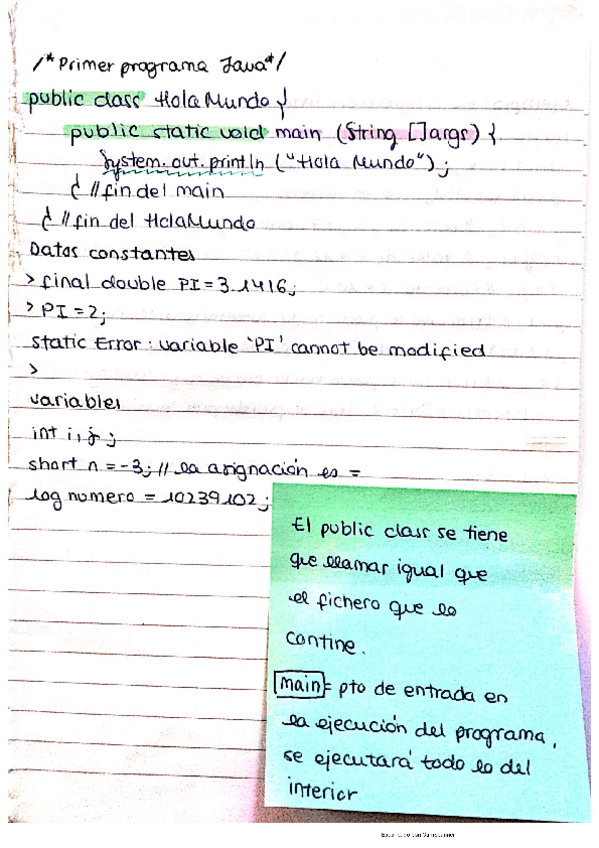 /*Primer programa Java*/
public class HolaMundo {
public static void main (String []args) {
System.out.println ("Hola Mundo");
} //fin del main
} //fin del HolaMundo
Datos constantes
> final double PI = 3.1416;
> PI = 2;
Static Error: variable 'PI' cannot be modified
>
variables
int i, j;
short n = -3; // la asignación es =
log numero = 10239102;
El public class se tiene
que llamar igual que
el fichero que lo
contine.
main = pto de entrada en
la ejecución del programa,
se ejecutará todo lo del
interior